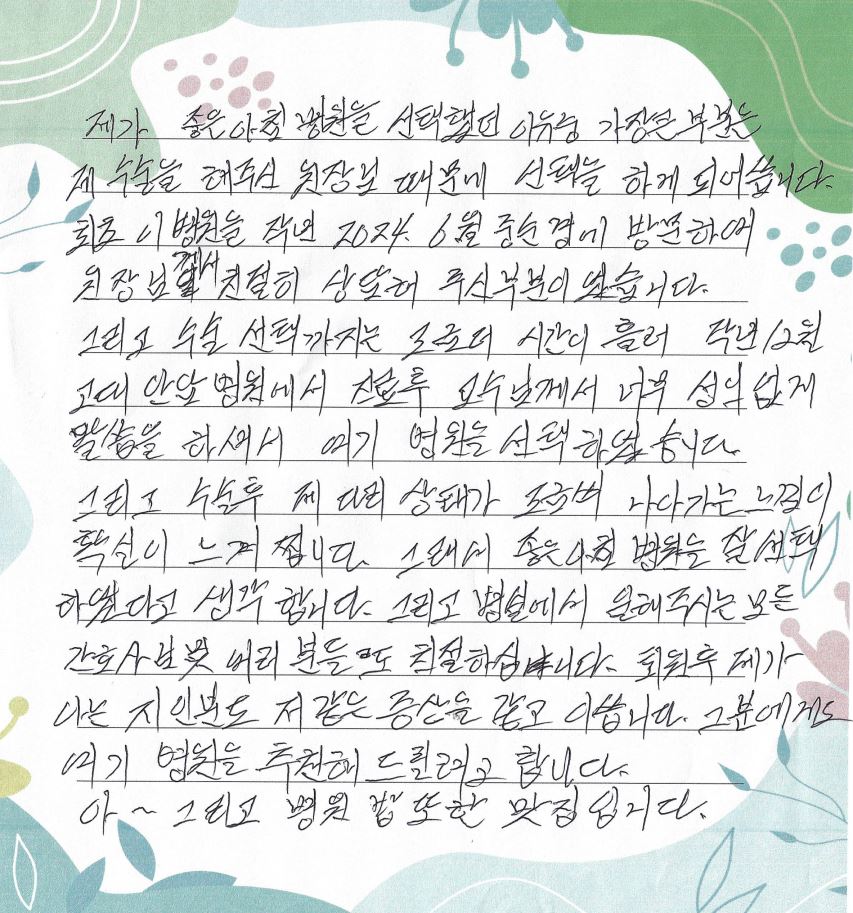 제가 좋은아침 병원을 선택했던 이유중 가장큰 부분은
제 수술을 해주신 원장님 때문에 선택을 하게 되어습니다.
최초 이 병원을 작년 2024. 6월 중순경에 방문하여
원장님께서 친절히 상담해 주신부분이 있습니다.
그리고 수술 선택까지는 조금더 시간이 흘러 작년 12월
고대 안암병원에서 진료후 교수님께서 너무 성의없게
말씀을 하셔서 여기 병원을 선택하였습니다.
그리고 수술후 제 다리 상태가 조금씩 나아가는 느낌이
확신이 느껴 집니다. 그래서 좋은아침 병원을 잘 선택
하였다고 생각 합니다. 그리고 병실에서 일해주시는 모든
간호사님및 여러 분들도 친절하십니다. 퇴원후 제가
아는 지인분도 저 같은 증상을 같고 이습니다. 그분에게도
여기 병원을 추천해 드릴려고 합니다.
아 ~ 그리고 병원 밥 또한 맛집입니다.